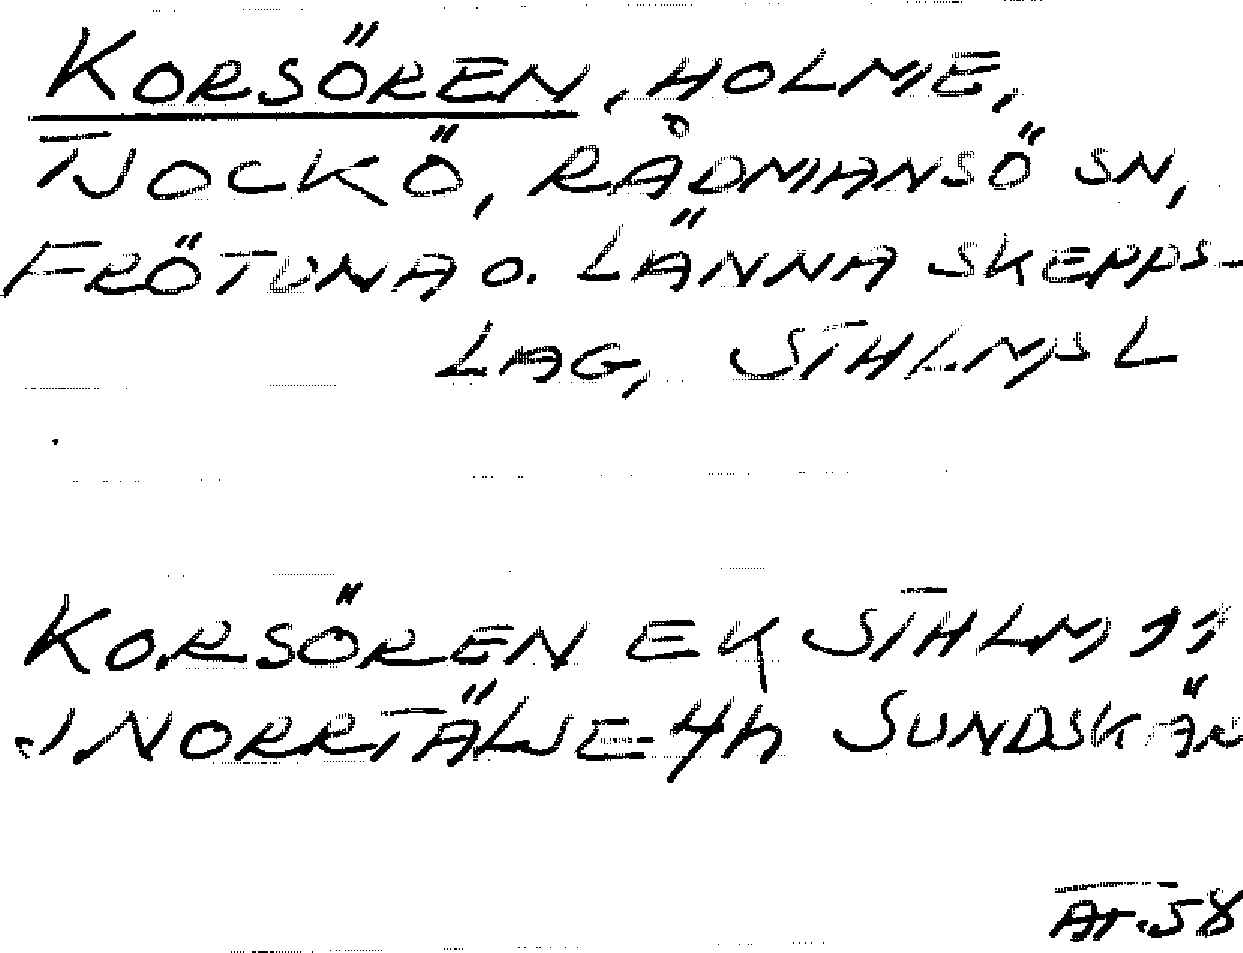 KORSÖREN, HOLME,
TJOCKÖ, RÅDMANSÖ SN,
FRÖTUNA O. LÄNNA SKEPPS-
LAG, STHLMS L
KORSÖREN EK STHLM 11
NORRTÄLJE 4h SUNDSKÄR
AT. 58